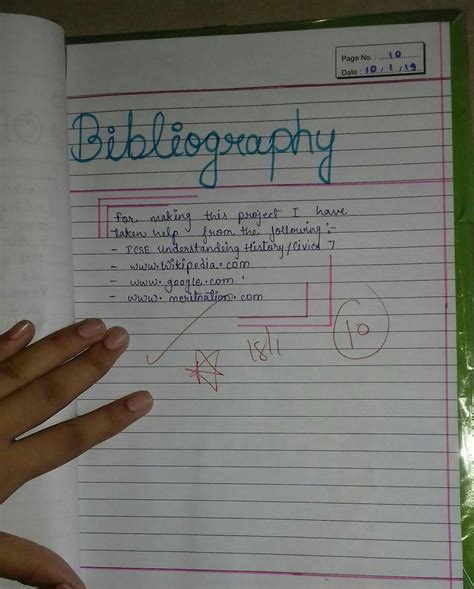 Page No. : 10
Date : 10 / 1 / 19
Bibliography
For making this project I have
taken help from the following :-
- ICSE Understanding History/Civics 7
- www.Wikipedia.com
- www.google.com
- www.meritnation.com
18/1
10